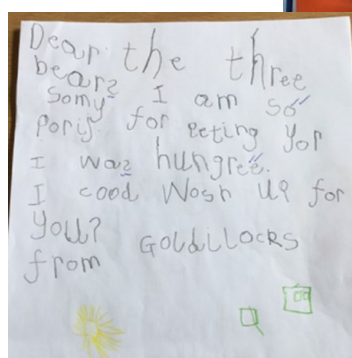 Dear the three
bears I am so
somy for eeting yor
porij.
I was hungree.
I cood wosh up for
you?
from GOLDILOCKS